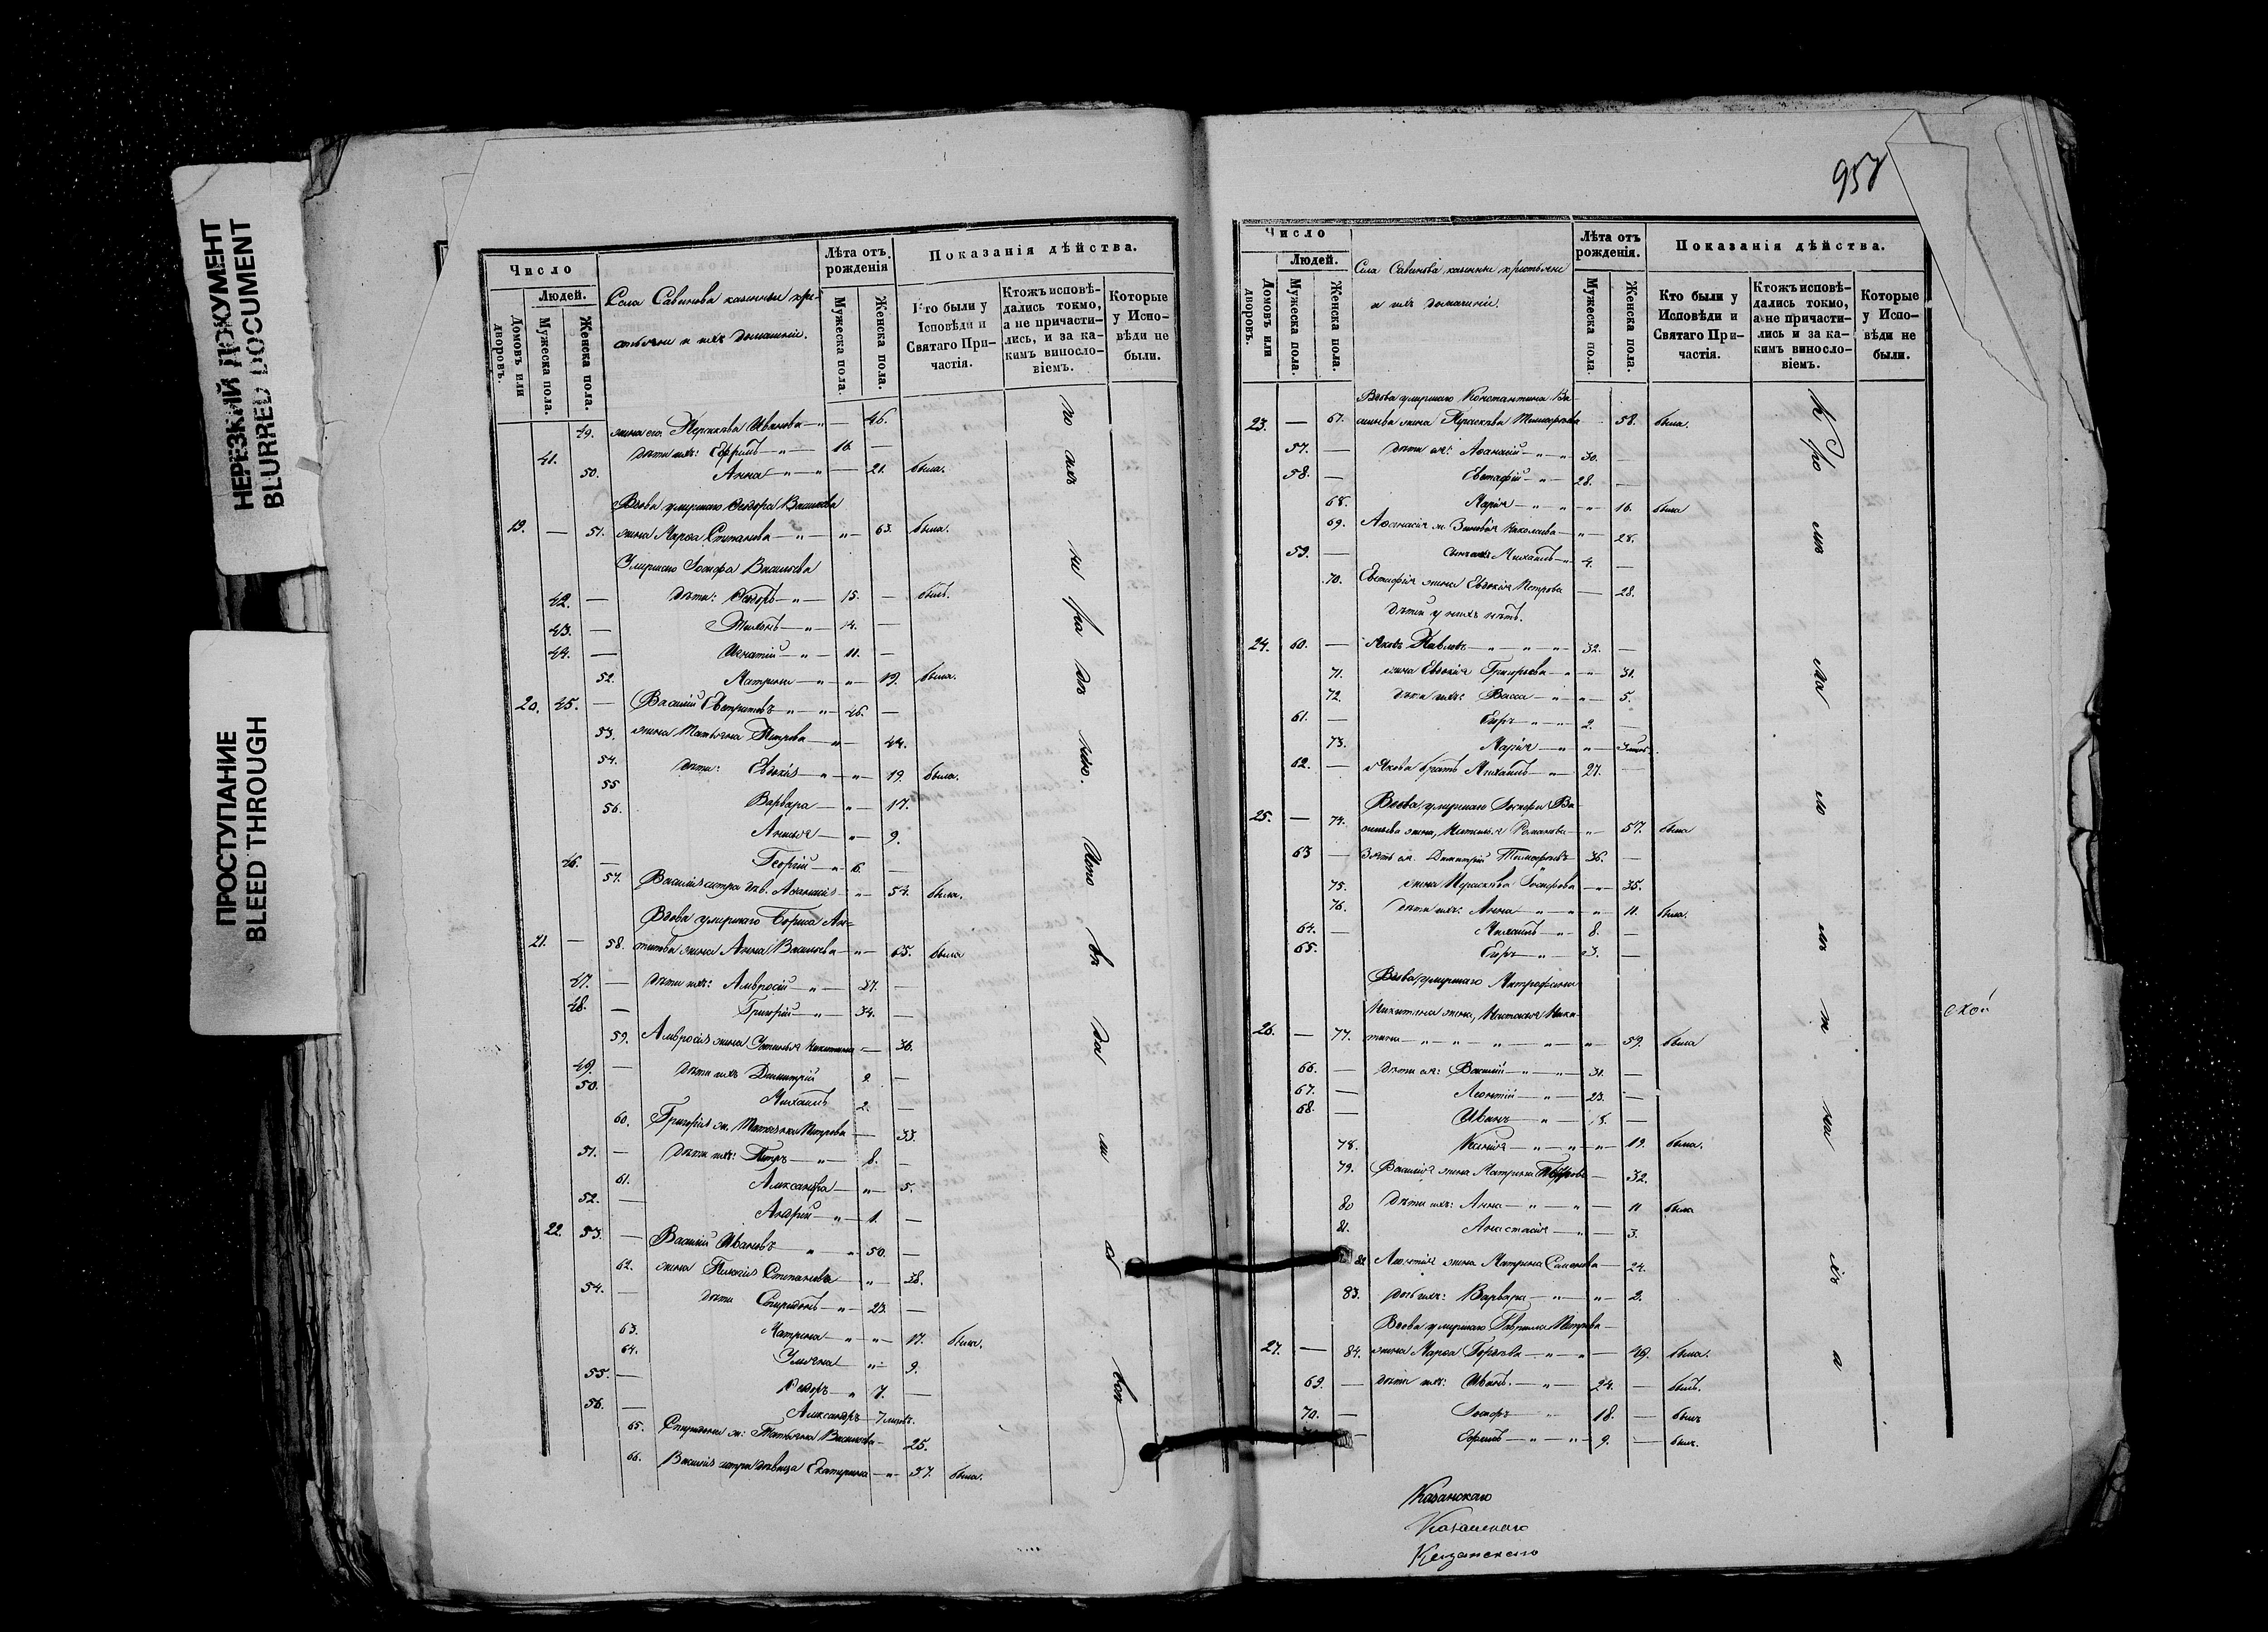 НЕРЕЗКИЙ ДОКУМЕНТ
BLURRED DOCUMENT
ПРОСТУПАНИЕ
BLEED THROUGH
Число
Людей.
Домовъ или дворовъ.
Мужеска пола.
Женска пола.
Села Савинова казенные кре-
стьяне и ихъ домашніе.
Лѣта отъ рожденія
Мужеска пола.
Женска пола.
Показанія дѣйства.
Кто были у Исповѣди и Святаго При-частія.
Ктожъ исповѣ-дались токмо, а не причасти-лись, и за ка-кимъ виносло-віемъ.
Которые у Испо-вѣди не были.
49. жена его Перасковья Иванова — 46.
41. дѣти ихъ: Ефимъ — 16. —
50. Анна — 21. была.
Вдова умершаго Ѳедора Васильева
19. — 51. жена Марѳа Степанова — 63. была.
Умершаго Іосифа Васильева
42. — дѣти: Ѳедоръ — 15. — былъ.
43. — Тихонъ — 14. —
44. — Игнатій — 11. —
52. Матрена — 19. была.
20. 45. — Василій Евстратовъ — 46. —
53. жена Татьяна Петрова — 44.
54. дѣти: Евдокія — 19. была.
55 Варвара — 17.
56. Анисья — 9.
46. — Георгій — 6. —
57. Василія сестра дѣв. Аѳанасія — 54. была.
Вдова умершаго Бориса Ан-
21. — 58. типова жена Анна Васильева — 65. была
47. — дѣти ихъ: Амвросій — 37. —
48. — Григорій — 34. —
59. Амвросія жена Устинья Никитина — 36.
49. — дѣти ихъ Димитрій 9. —
50. Михаилъ 2. —
60. Григорія ж. Татьяна Петрова — 33.
51. — дѣти ихъ: Петръ — 8. —
61. Александра — 5.
52. — Андрей — 1. —
22. 53. — Василій Ивановъ — 50. —
62. жена Пелагія Степанова — 38.
54. — дѣти Спиридонъ — 23. —
63. Матрена — 17. была.
64. Ульяна — 9.
55. — Ѳедоръ — 7. —
56. — Александръ — 7 мѣсяц.
65. Спиридона ж: Татьяна Васильева — 25.
66. Василія сестра дѣвица Екатерина — 57. была.
957
Число
Людей.
Домовъ или дворовъ.
Мужеска пола.
Женска пола.
Села Савинова казенные крестьяне
и ихъ домашніе.
Лѣта отъ рожденія.
Мужеска пола.
Женска пола.
Показанія дѣйства.
Кто были у Исповѣди и Святаго При-частія.
Ктожъ исповѣ-дались токмо, а не причасти-лись и за ка-кимъ виносло-віемъ.
Которые у Испо-вѣди не были.
Вдова умершаго Константина Ва-
23. — 67. сильева жена Прасковья Тимоѳеева — 58. была.
57. — дѣти ея: Аѳанасій — 30. —
58. — Евстафій — 28. —
68. Марія — 16. была
69. Аѳанасія ж. Зиновія Николаева — 28.
59. — сынъ ихъ Михаилъ — 4. —
70. Евстафія жена Евдокія Петрова — 28.
дѣтей у нихъ нѣтъ.
24. 60. — Яковъ Павловъ — 32. —
71. жена Евдокія Григорьева — 31.
72. дѣти ихъ: Васса — 5.
61. — Егоръ — 2. —
73. Марія — 3 мѣсяц.
62. — Якова братъ Михаилъ — 27. —
Вдова умершаго Іосифа Ва-
25. — 74. сильева жена, Наталья Романова — 57. была
63 — Зять ея Димитрій Тимоѳеевъ 36. —
75. жена Прасковья Іосифова — 35.
76. дѣти ихъ: Анна — 11. была.
64. — Михаилъ — 8. —
65. Егоръ — 3. —
Вдова умершаго Митрофана
Никитина жена, Наталья Ники-
26. — 77. тина — 59. была
66. — дѣти ея: Василій — 31. —
67. — Леонтій — 23. —
68. — Иванъ —
78. Ксенія — 19. была.
79. Василія жена Матрена — 32.
80 дѣти ихъ: Анна — 11 была
81. Анастасія — 3.
82 Леонтія жена Матрена Семенова — 24.
83. дочь ихъ: Варвара — 2.
Вдова умершаго Гавріила Петрова
27. — 84. жена Марѳа Егорова — 49. была.
69. — дѣти ихъ: Иванъ — 24. — былъ.
70. — Іосифъ 18. — былъ
Ефимъ — 9. — былъ.
Казанскаго
Казанскаго
Казанскаго